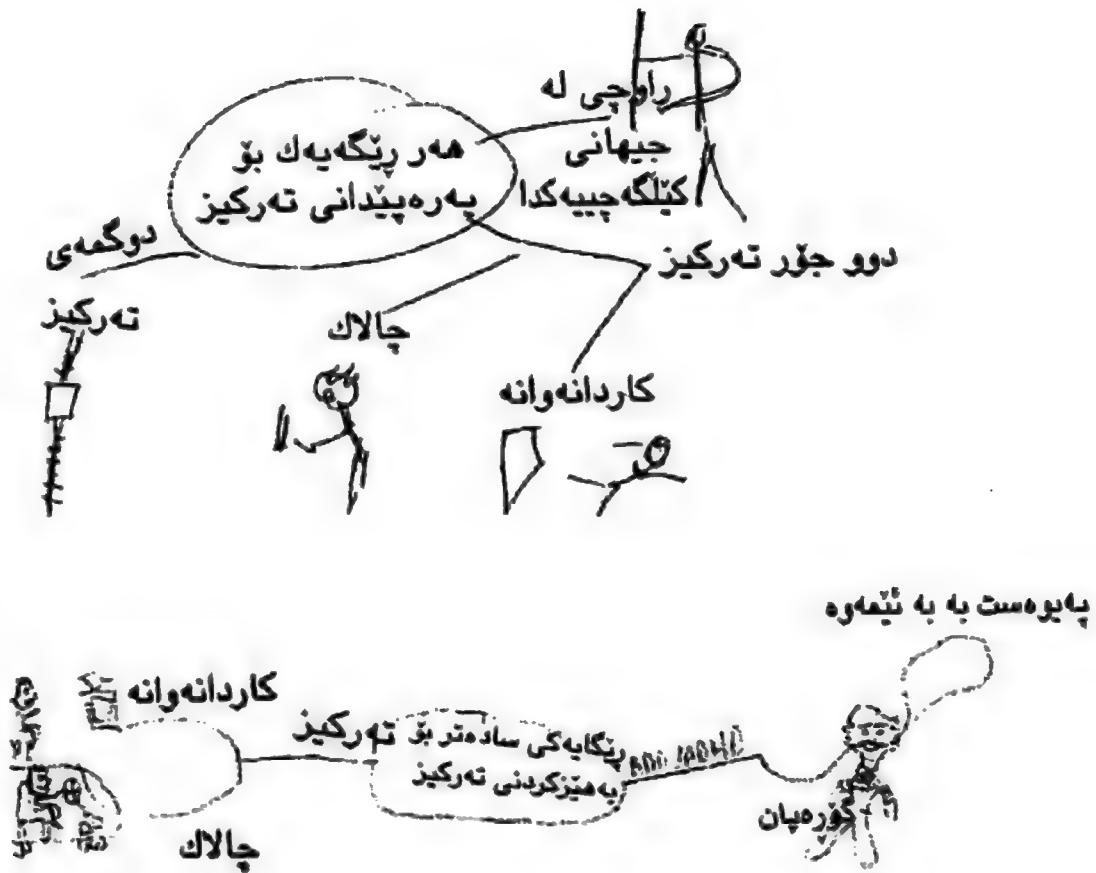 راوچی له
جیهانی
کێڵگەچییەکدا
هەر ڕێگەیەك بۆ
پەرەپێدانی تەرکیز
دوو جۆر تەرکیز
دوگمەی
تەرکیز
چالاك
کاردانەوانە
پەیوەست بە بە ئێمەوە
کاردانەوانە
تەرکیز
ڕێگایەکی سادەتر بۆ
بەهێزکردنی تەرکیز
ADD/ADHD
گۆڕەپان
چالاك